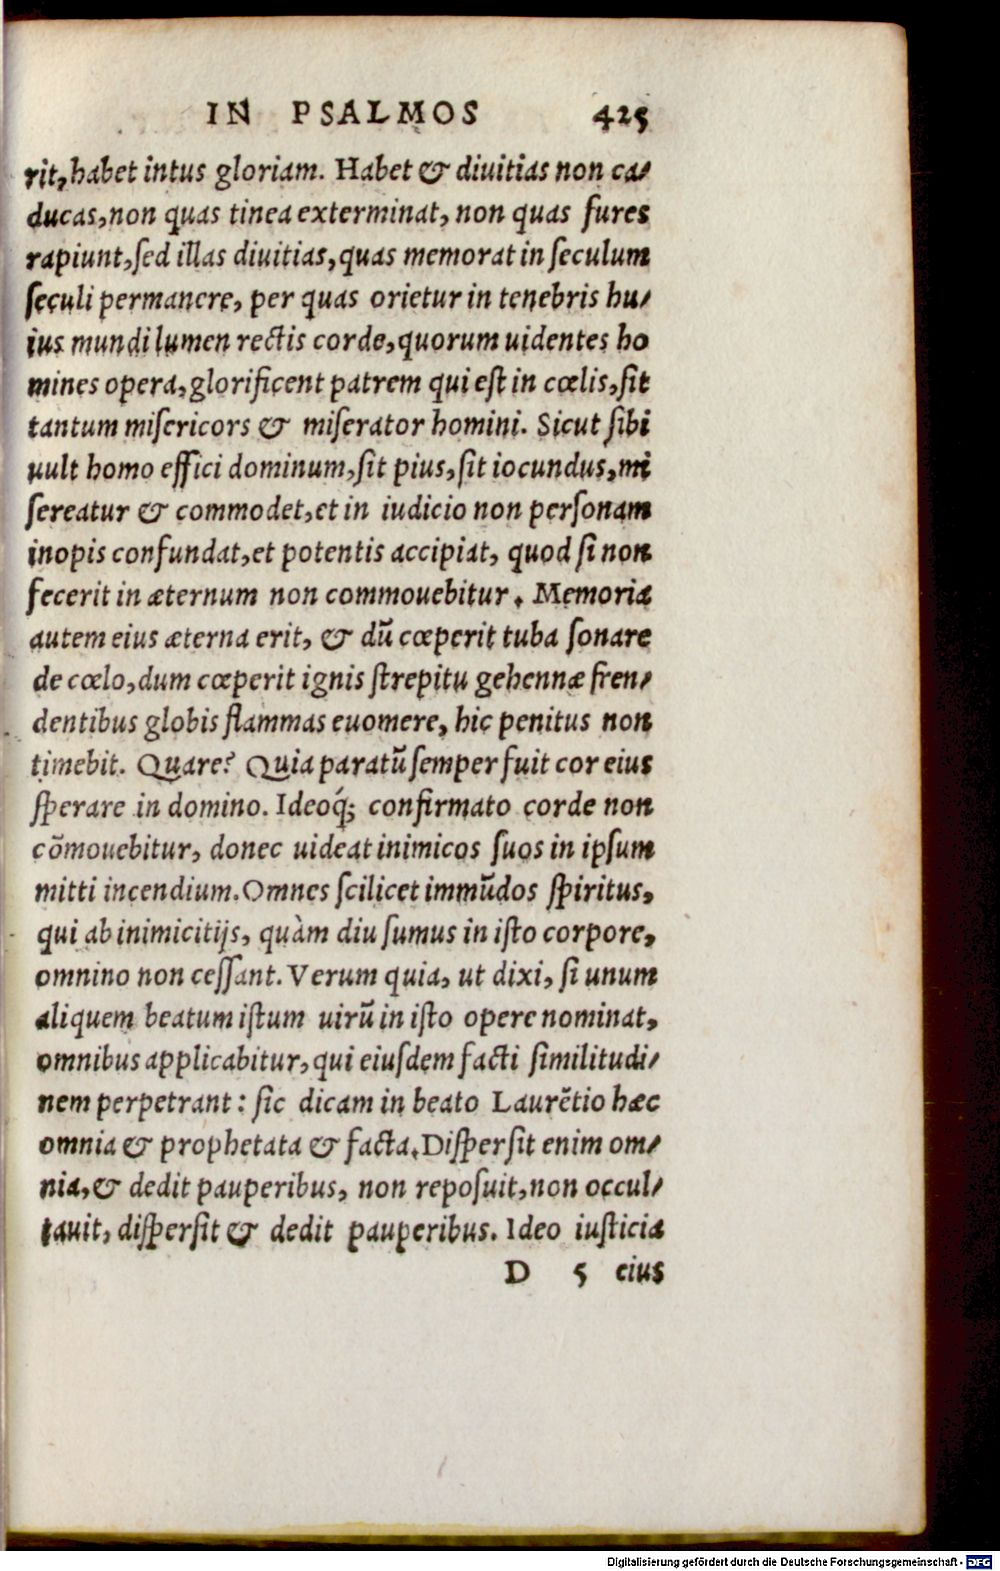 IN PSALMOS 425
rit, habet intus gloriam. Habet & diuitias non ca⸗
ducas, non quas tinea exterminat, non quas fures
rapiunt, sed illas diuitias, quas memorat in seculum
seculi permanere, per quas orietur in tenebris hu⸗
ius mundi lumen rectis corde, quorum uidentes ho
mines opera, glorificent patrem qui est in cœlis, sit
tantum misericors & miserator homini. Sicut sibi
uult homo effici dominum, sit pius, sit iocundus, mi
sereatur & commodet, et in iudicio non personam
inopis confundat, et potentis accipiat, quod si non
fecerit in æternum non commouebitur. Memoria
autem eius æterna erit, & dũ cœperit tuba sonare
de cœlo, dum cœperit ignis strepitu gehennæ fren⸗
dentibus globis flammas euomere, hic penitus non
timebit. Quare? Quia paratũ semper fuit cor eius
sperare in domino. Ideoq́; confirmato corde non
cõmouebitur, donec uideat inimicos suos in ipsum
mitti incendium. Omnes scilicet immũdos spiritus,
qui ab inimicitijs, quàm diu sumus in isto corpore,
omnino non cessant. Verum quia, ut dixi, si unum
aliquem beatum istum uirũ in isto opere nominat,
omnibus applicabitur, qui eiusdem facti similitudi⸗
nem perpetrant: sic dicam in beato Laurẽtio hæc
omnia & prophetata & facta. Dispersit enim om⸗
nia, & dedit pauperibus, non reposuit, non occul⸗
tauit, dispersit & dedit pauperibus. Ideo iusticia
D 5 eius
Digitalisierung gefördert durch die Deutsche Forschungsgemeinschaft - DFG